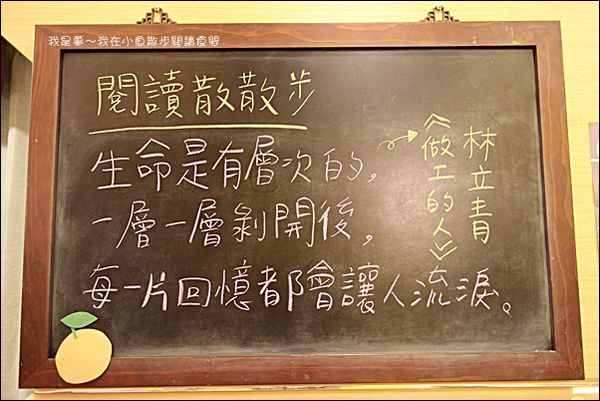 我是夢～我在小魚散步閱讀食間
閱讀散散步
生命是有層次的，
一層一層剝開後，
每一片回憶都會讓人流淚。
林立青
《做工的人》